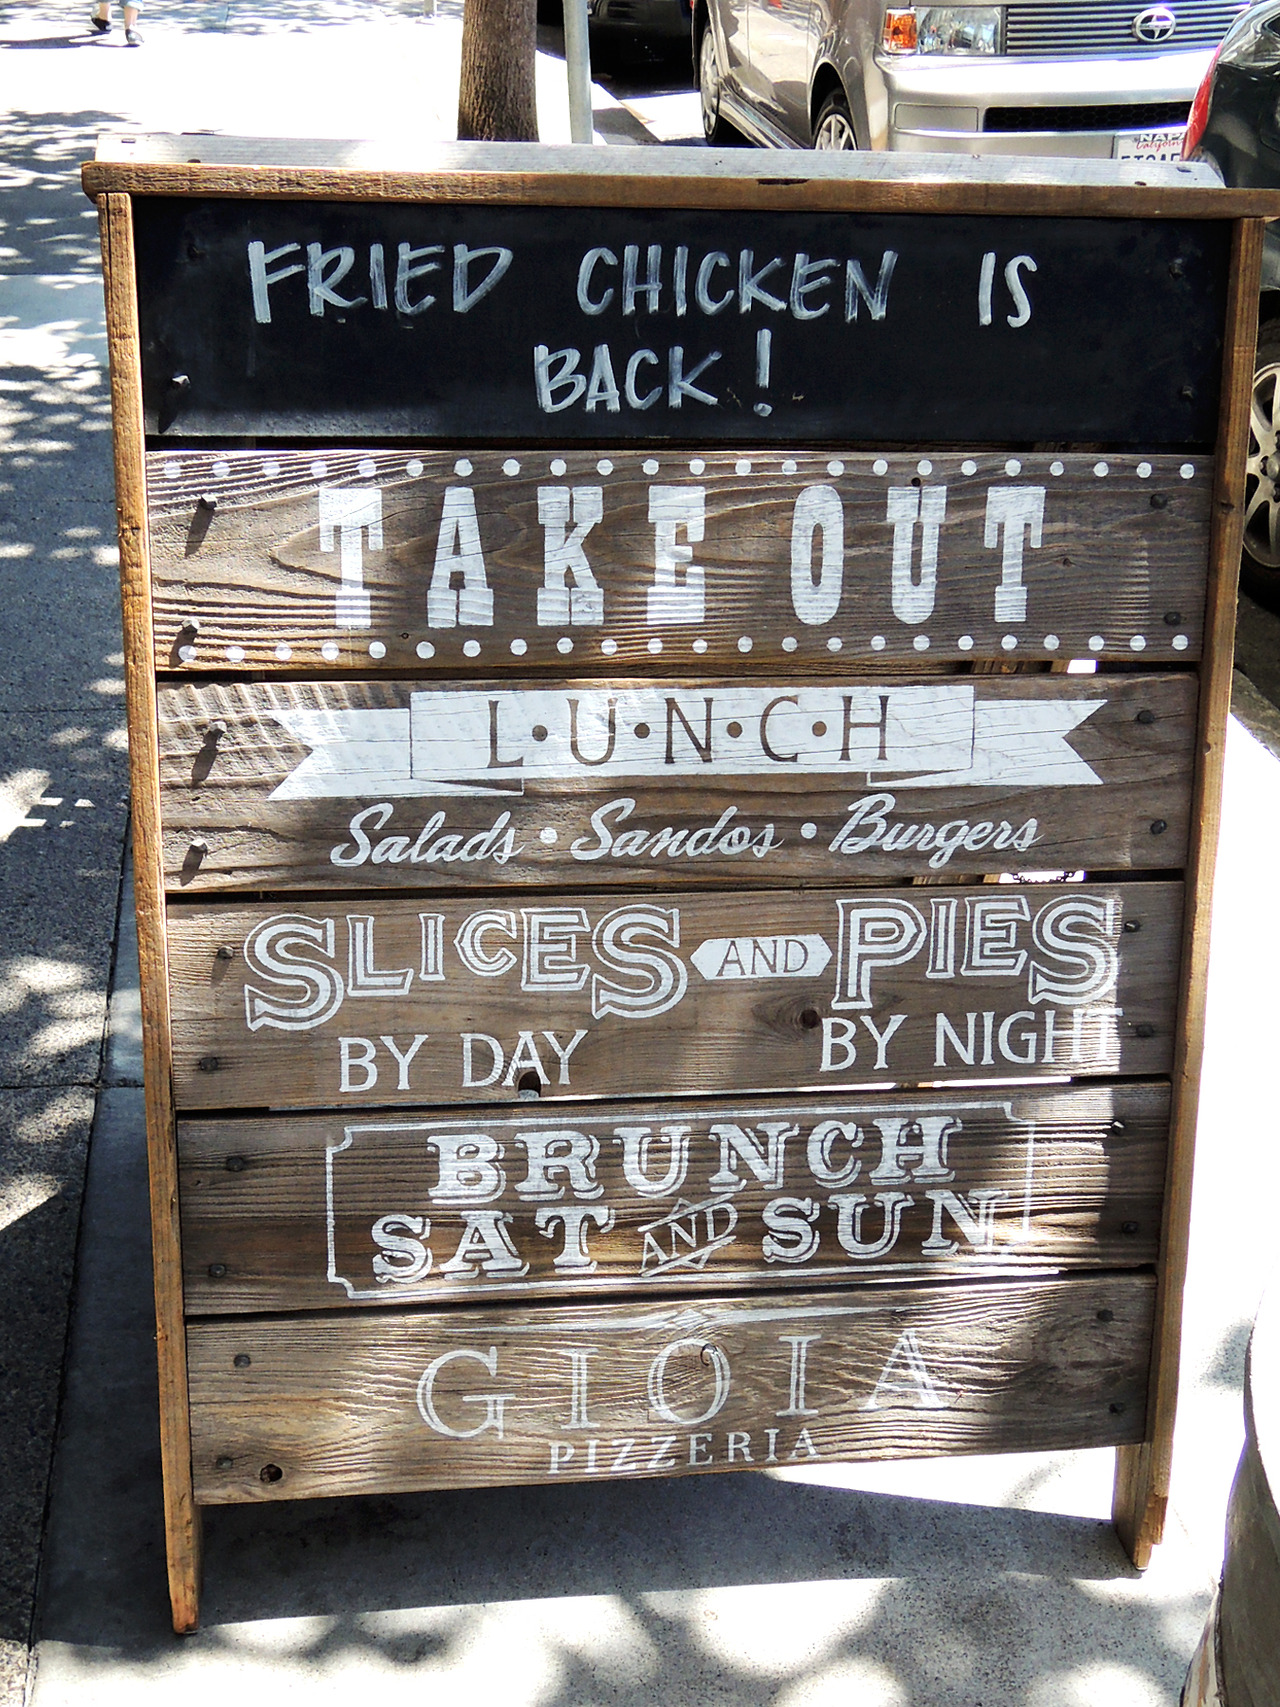 FRIED CHICKEN IS
BACK!
TAKE OUT
L•U•N•C•H
Salads • Sandos • Burgers
SLICES AND PIES
BY DAY BY NIGHT
BRUNCH
SAT AND SUN
GIOIA
PIZZERIA